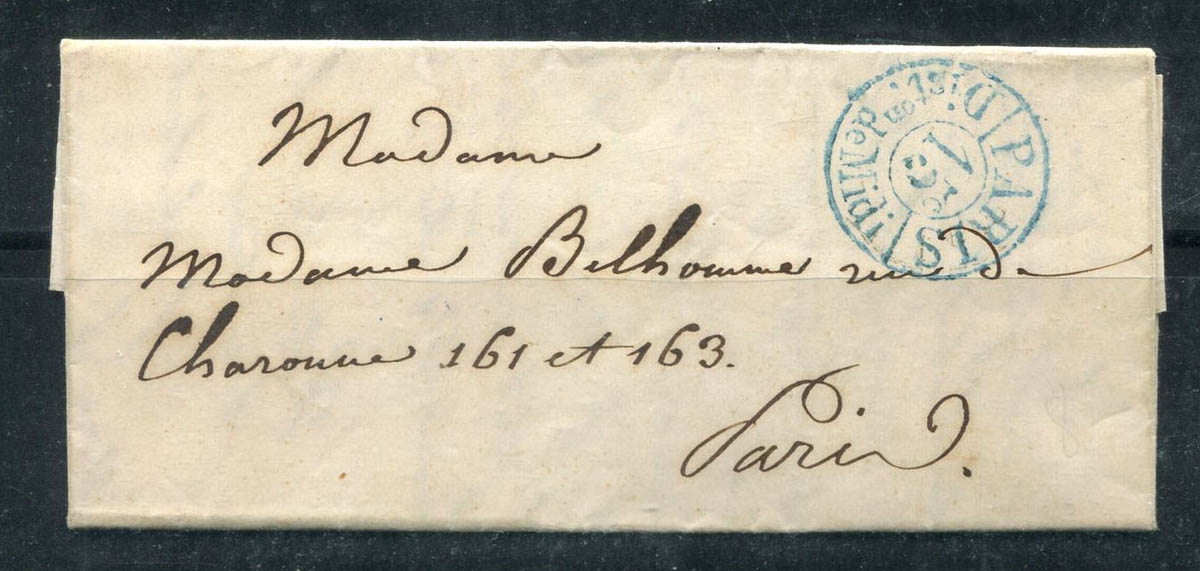 Madame
Madame Belhomme rue de
Charonne 161 et 163.
Paris.
PARIS
15c